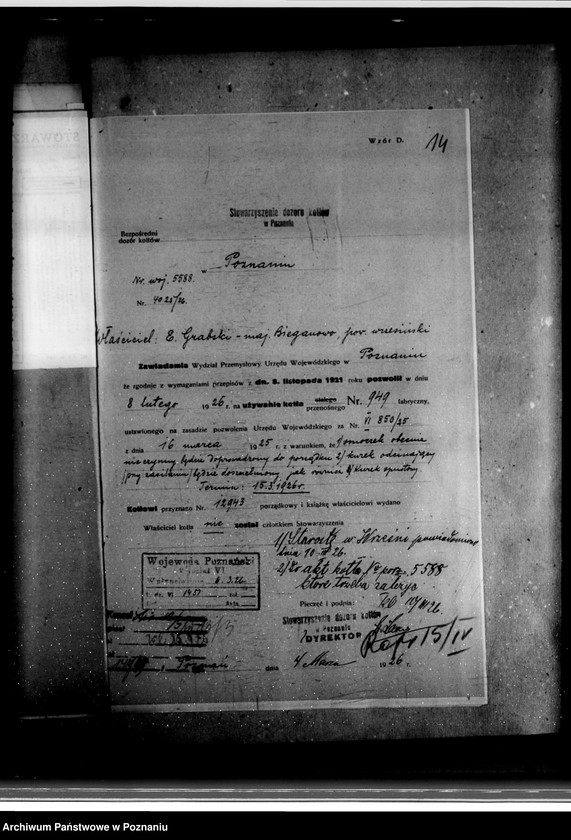 STOWARZ
Wzór D.
14
Stowarzyszenie dozoru kotłów
w Poznaniu
Bezpośredni
dozór kotłów
w Poznaniu
Nr. woj. 5588.
Nr. 4025/26.
Właściciel: E. Grabski - maj. Bieganowo, pow. wrzesiński
Zawiadamia Wydział Przemysłowy Urzędu Wojewódzkiego w Poznaniu
że zgodnie z wymaganiami przepisów z dn. 8. listopada 1921 roku pozwolił w dniu
8 lutego 1926 r. na używanie kotła stałego przenośnego Nr. 949 fabryczny,
ustawionego na zasadzie pozwolenia Urzędu Wojewódzkiego za Nr. VI 850/25
z dnia 16 marca 1925 r. z warunkiem, że 1/ smoczek obecnie
nieczynny będzie doprowadzony do porządku 2/ kurek odcinający
będzie doszczelniony jak również 3/ kurek spustowy.
Termin: 15.3.1926 r.
Kotłowi przyznano Nr. 12943 porządkowy i książkę właścicielowi wydano
Właściciel kotła nie został członkiem Stowarzyszenia
1/ Starostę w Wrześni powiadomiono
dnia 10 26.
2/ Do akt kotła No porz. 5588
Wojewoda Poznański
Wydział VI
Wpłynęło 8.3.26.
L. dz. VI 1451 zał
Pieczęć i podpis:
Stowarzyszenie dozoru kotłów
w Poznaniu
DYREKTOR
15/IV
Poznań dnia 4 Marca 1926 r.
Archiwum Państwowe w Poznaniu